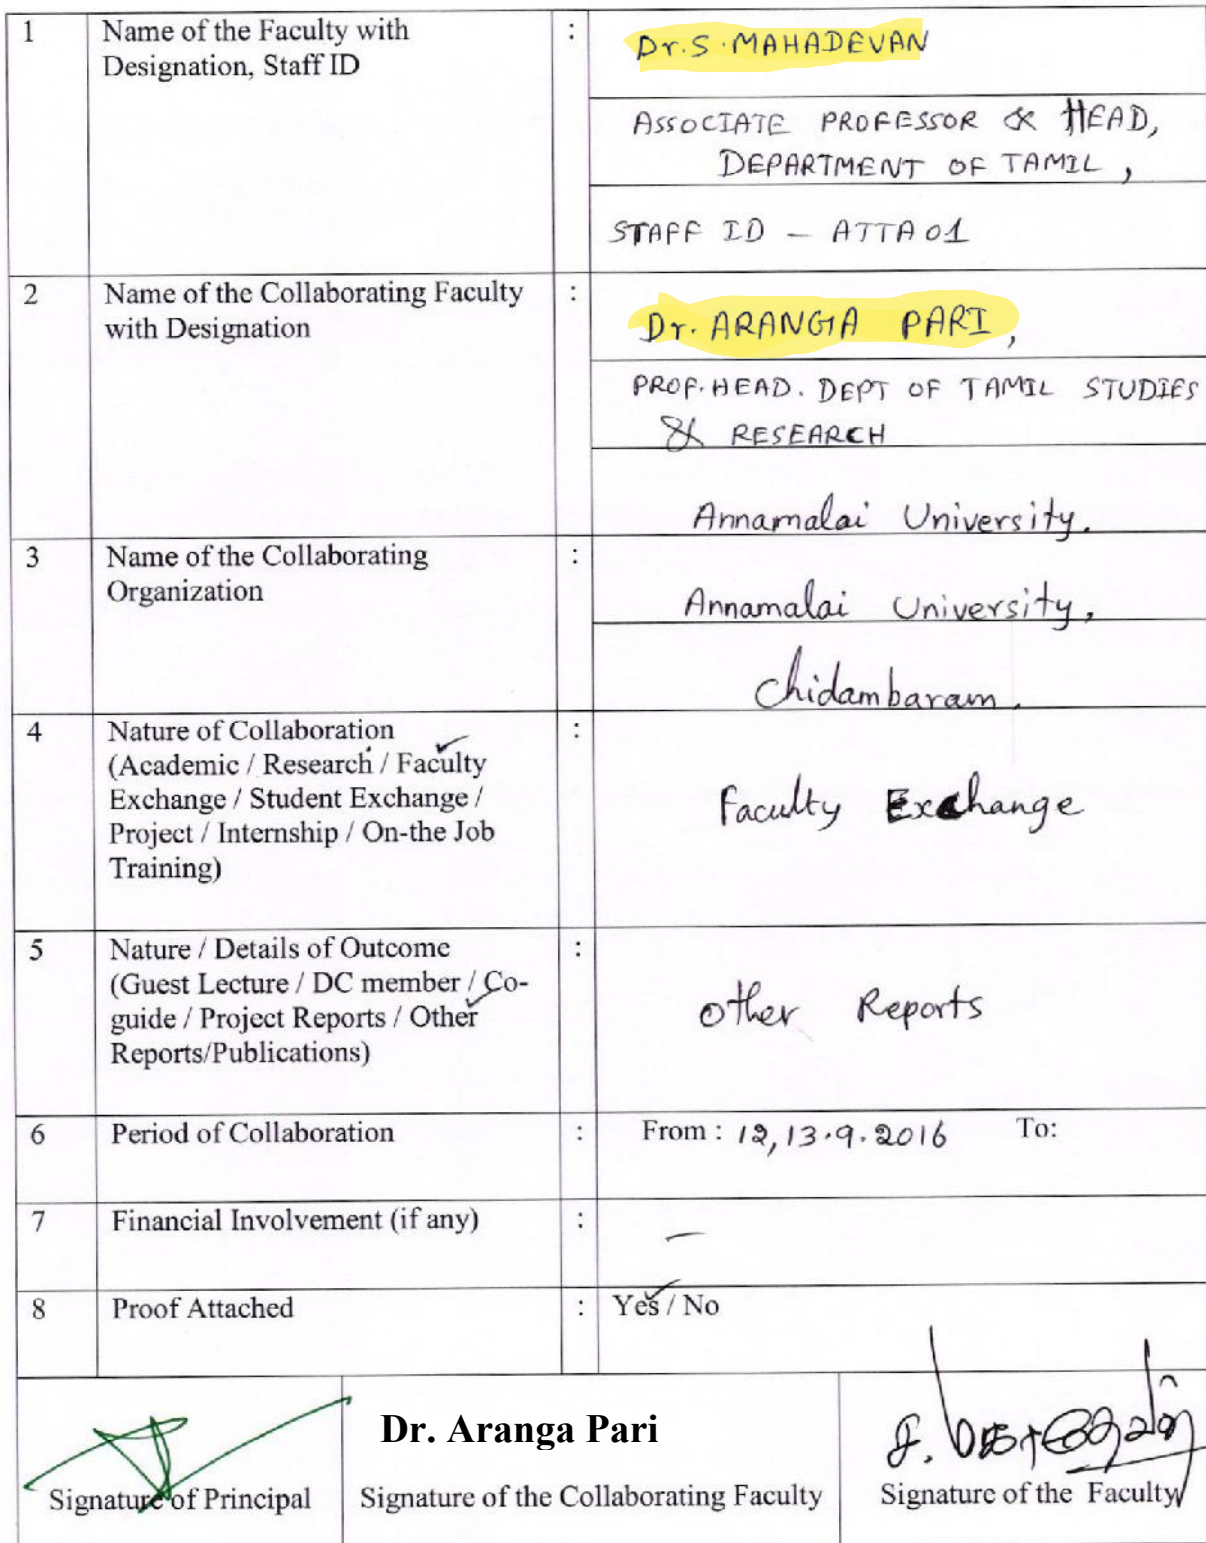 1 Name of the Faculty with : Dr. S. MAHADEVAN
Designation, Staff ID
ASSOCIATE PROFESSOR & HEAD,
DEPARTMENT OF TAMIL,
STAFF ID - ATTA01
2 Name of the Collaborating Faculty :
with Designation Dr. ARANGA PARI,
PROF. HEAD. DEPT OF TAMIL STUDIES
& RESEARCH
Annamalai University.
3 Name of the Collaborating :
Organization Annamalai University,
Chidambaram.
4 Nature of Collaboration :
(Academic / Research / Faculty
Exchange / Student Exchange / Faculty Exchange
Project / Internship / On-the Job
Training)
5 Nature / Details of Outcome :
(Guest Lecture / DC member / Co-
guide / Project Reports / Other Other Reports
Reports/Publications)
6 Period of Collaboration : From : 12, 13.9.2016 To:
7 Financial Involvement (if any) : -
8 Proof Attached : Yes / No
Dr. Aranga Pari
Signature of Principal Signature of the Collaborating Faculty Signature of the Faculty